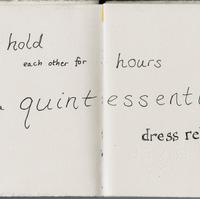 hold
each other for hours
quintessenti
dress re